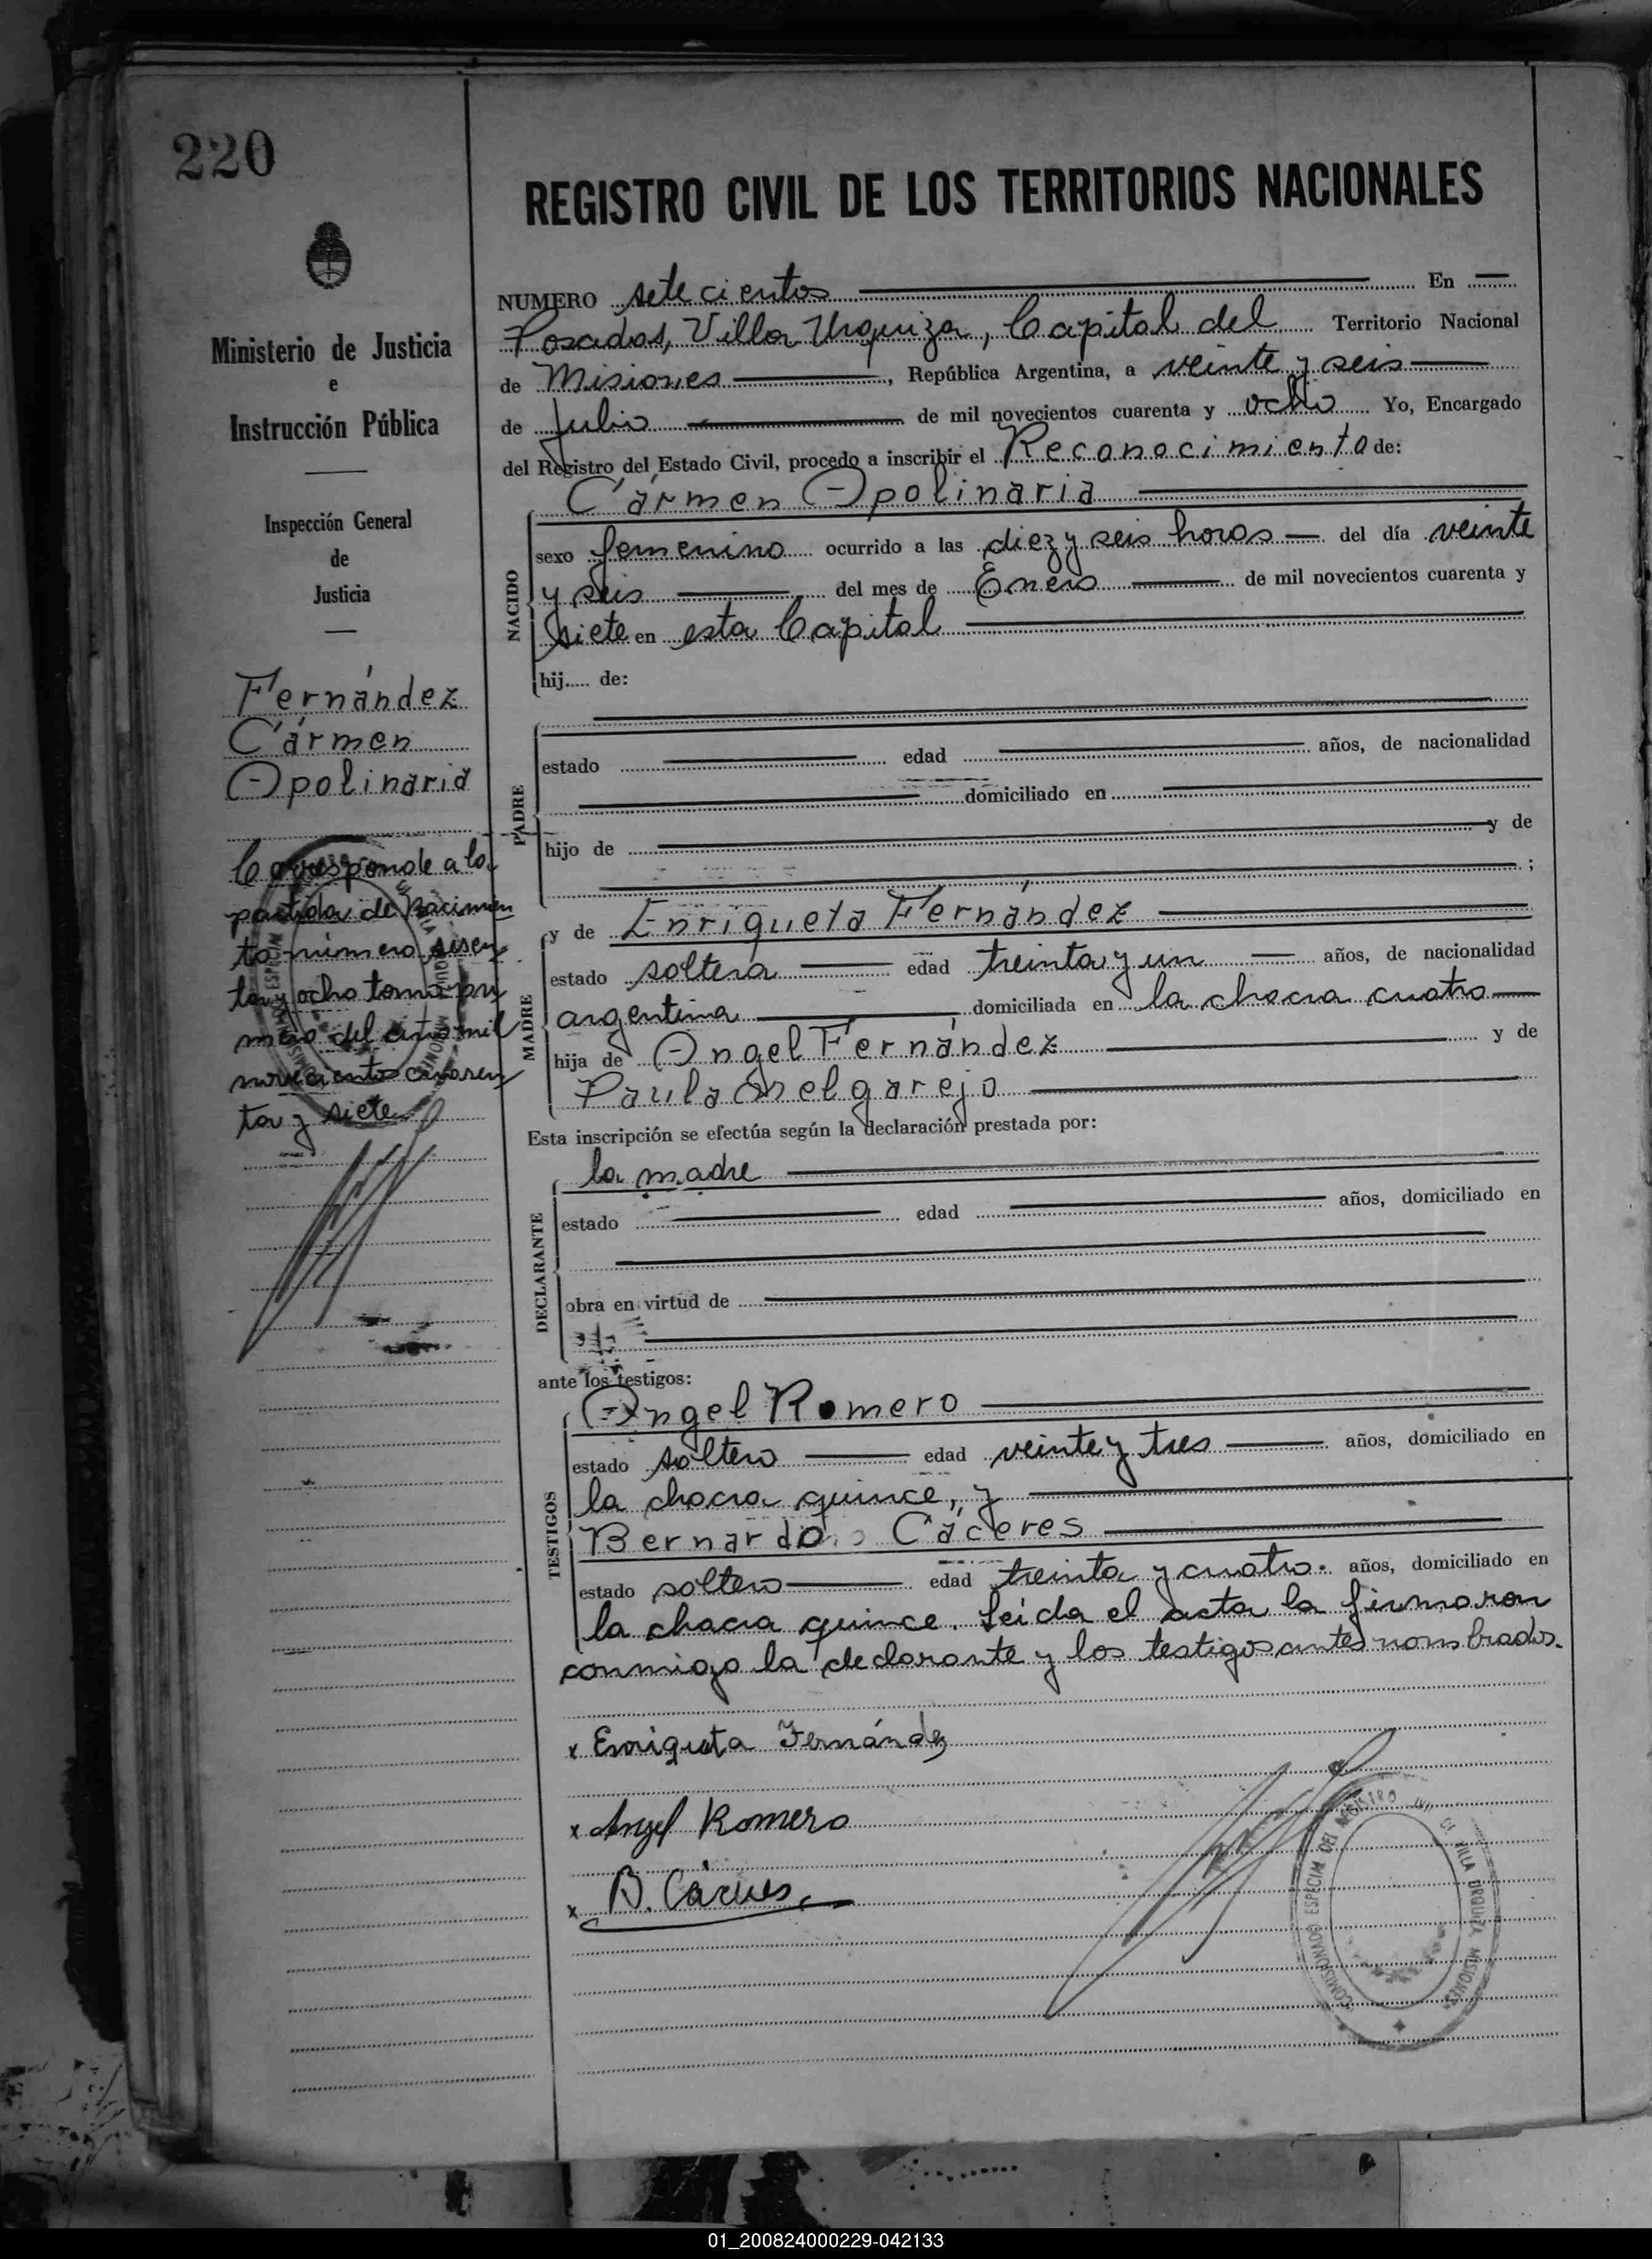 220
REGISTRO CIVIL DE LOS TERRITORIOS NACIONALES
Ministerio de Justicia
e
Instrucción Pública
Inspección General
de
Justicia
Fernández
Cármen
Apolinaria
Corresponde a la
partida de Nacimien
to número sesen
ta y ocho tomo pri
mero del año mil
novecientos cuaren
ta y siete
NUMERO setecientos En
Posadas, Villa Urquiza, Capital del Territorio Nacional
de Misiones, República Argentina, a veinte y seis
de Julio de mil novecientos cuarenta y ocho Yo, Encargado
del Registro del Estado Civil, procedo a inscribir el Reconocimiento de:
Cármen Apolinaria
NACIDO
sexo femenino ocurrido a las diez y seis horas del día veinte
y seis del mes de Enero de mil novecientos cuarenta y
siete en esta Capital
hij..... de:
PADRE
estado edad años, de nacionalidad
domiciliado en
hijo de y de
;
MADRE
y de Enriqueta Fernández
estado soltera edad treinta y un años, de nacionalidad
argentina domiciliada en la chacra cuatro
hija de Angel Fernández y de
Paula Melgarejo
Esta inscripción se efectúa según la declaración prestada por:
DECLARANTE
la madre
estado edad años, domiciliado en
obra en virtud de
ante los testigos:
TESTIGOS
Angel Romero
estado soltero edad veinte y tres años, domiciliado en
la chacra quince, y
Bernardo Cáceres
estado soltero edad treinta y cuatro. años, domiciliado en
la chacra quince. Leída el acta la firmaron
conmigo la declarante y los testigos antes nombrados.
x Enriqueta Fernández
x Angel Romero
x B. Cáceres
COMISIONADO ESPECIAL DEL REGISTRO CIVIL DE VILLA URQUIZA MISIONES
01_200824000229-042133